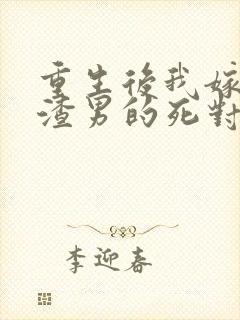 重生後我嫁
渣男的死對
李迎春